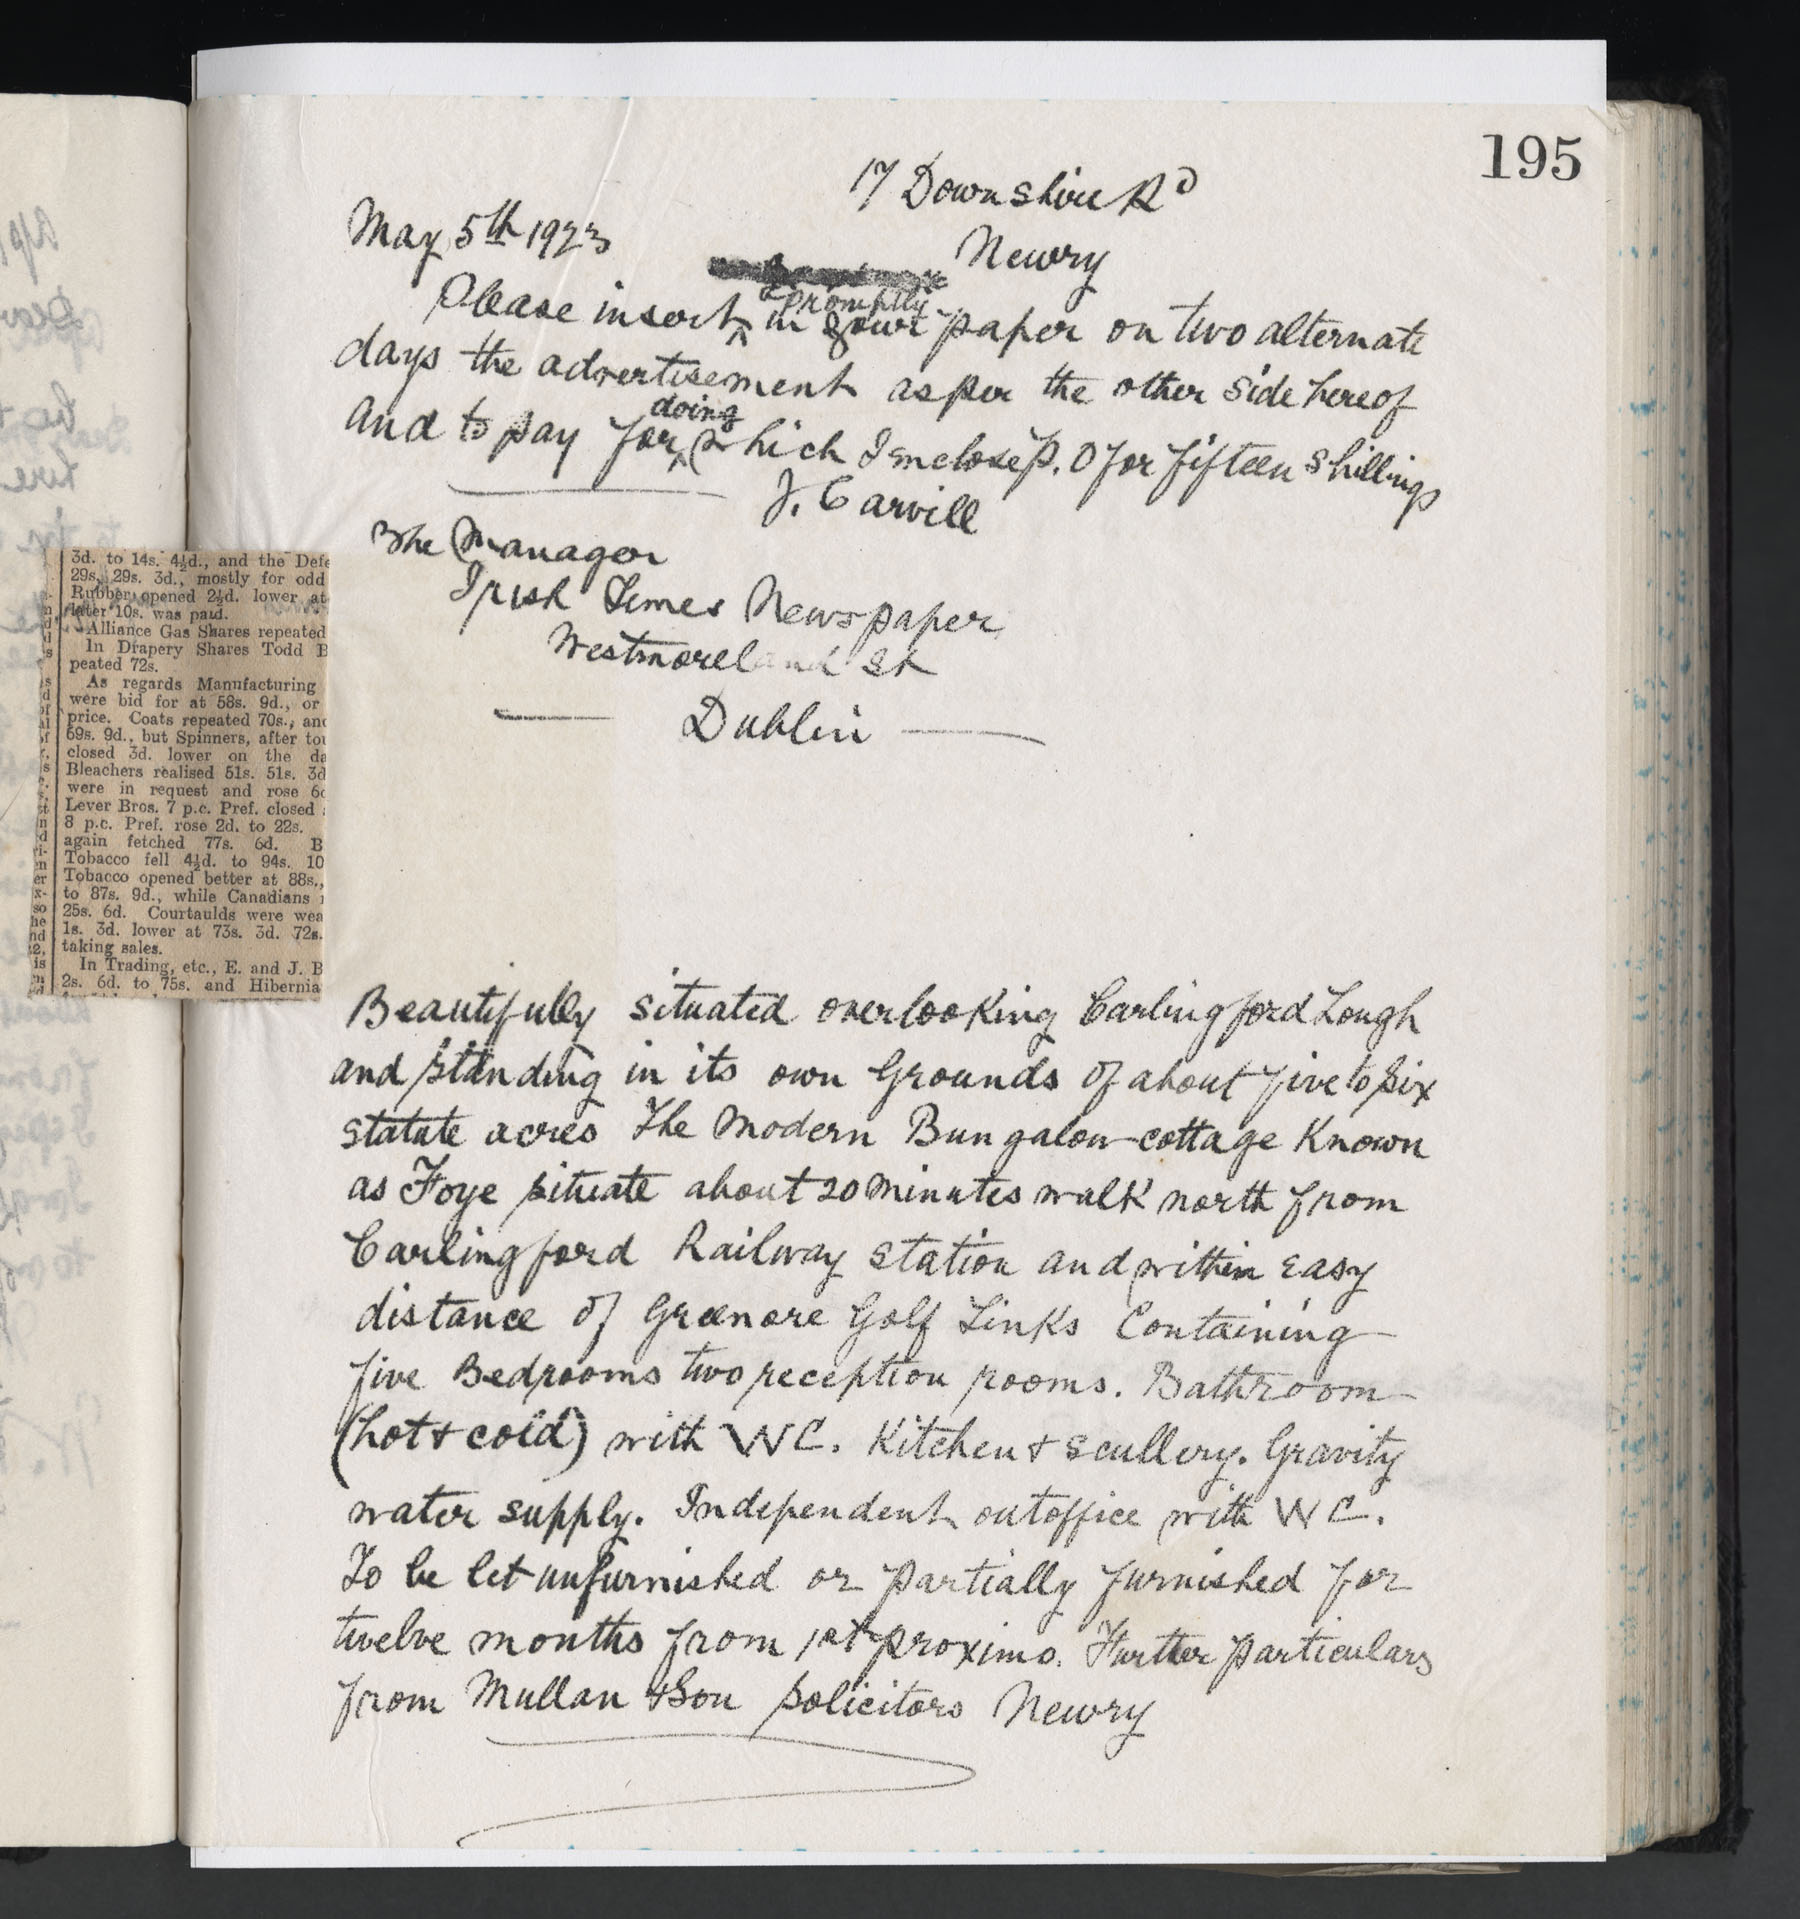 195
17 Downshire Rd
May 5th 1923
Newry
promptly
Please insert ^ in your paper on two alternate
days the advertisement as per the other side hereof
doing
and to pay for ^ which I enclose P.O for fifteen shillings
J. Carvill
The Manager
Irish Times Newspaper
Westmoreland St
Dublin
3d. to 14s. 4½d., and the Defe
29s., 29s. 3d., mostly for odd
Rubber opened 2½d. lower at
later 10s. was paid.
Alliance Gas Shares repeated
In Drapery Shares Todd B
peated 72s.
As regards Manufacturing
were bid for at 58s. 9d., or
price. Coats repeated 70s., and
69s. 9d., but Spinners, after tou
closed 3d. lower on the da
Bleachers realised 51s. 51s. 3d
were in request and rose 6d
Lever Bros. 7 p.c. Pref. closed
8 p.c. Pref. rose 2d. to 22s.
again fetched 77s. 6d. B
Tobacco fell 4½d. to 94s. 10
Tobacco opened better at 88s.,
to 87s. 9d., while Canadians
25s. 6d. Courtaulds were wea
1s. 3d. lower at 73s. 3d. 72s.
taking sales.
In Trading, etc., E. and J. B
2s. 6d. to 75s. and Hibernia
Beautifully situated overlooking Carlingford Lough
and standing in its own Grounds of about five to six
statute acres The Modern Bungalow-cottage Known
as Foye situate about 20 minutes walk north from
Carlingford Railway station and within easy
distance of Greenore Golf Links Containing
five Bedrooms two reception rooms. Bathroom
(hot & cold) with WC. Kitchen & scullery. Gravity
water supply. Independent outoffice with WC.
To be let unfurnished or partially furnished for
twelve months from 1st proximo. Further particulars
from Mullan & Son solicitors Newry